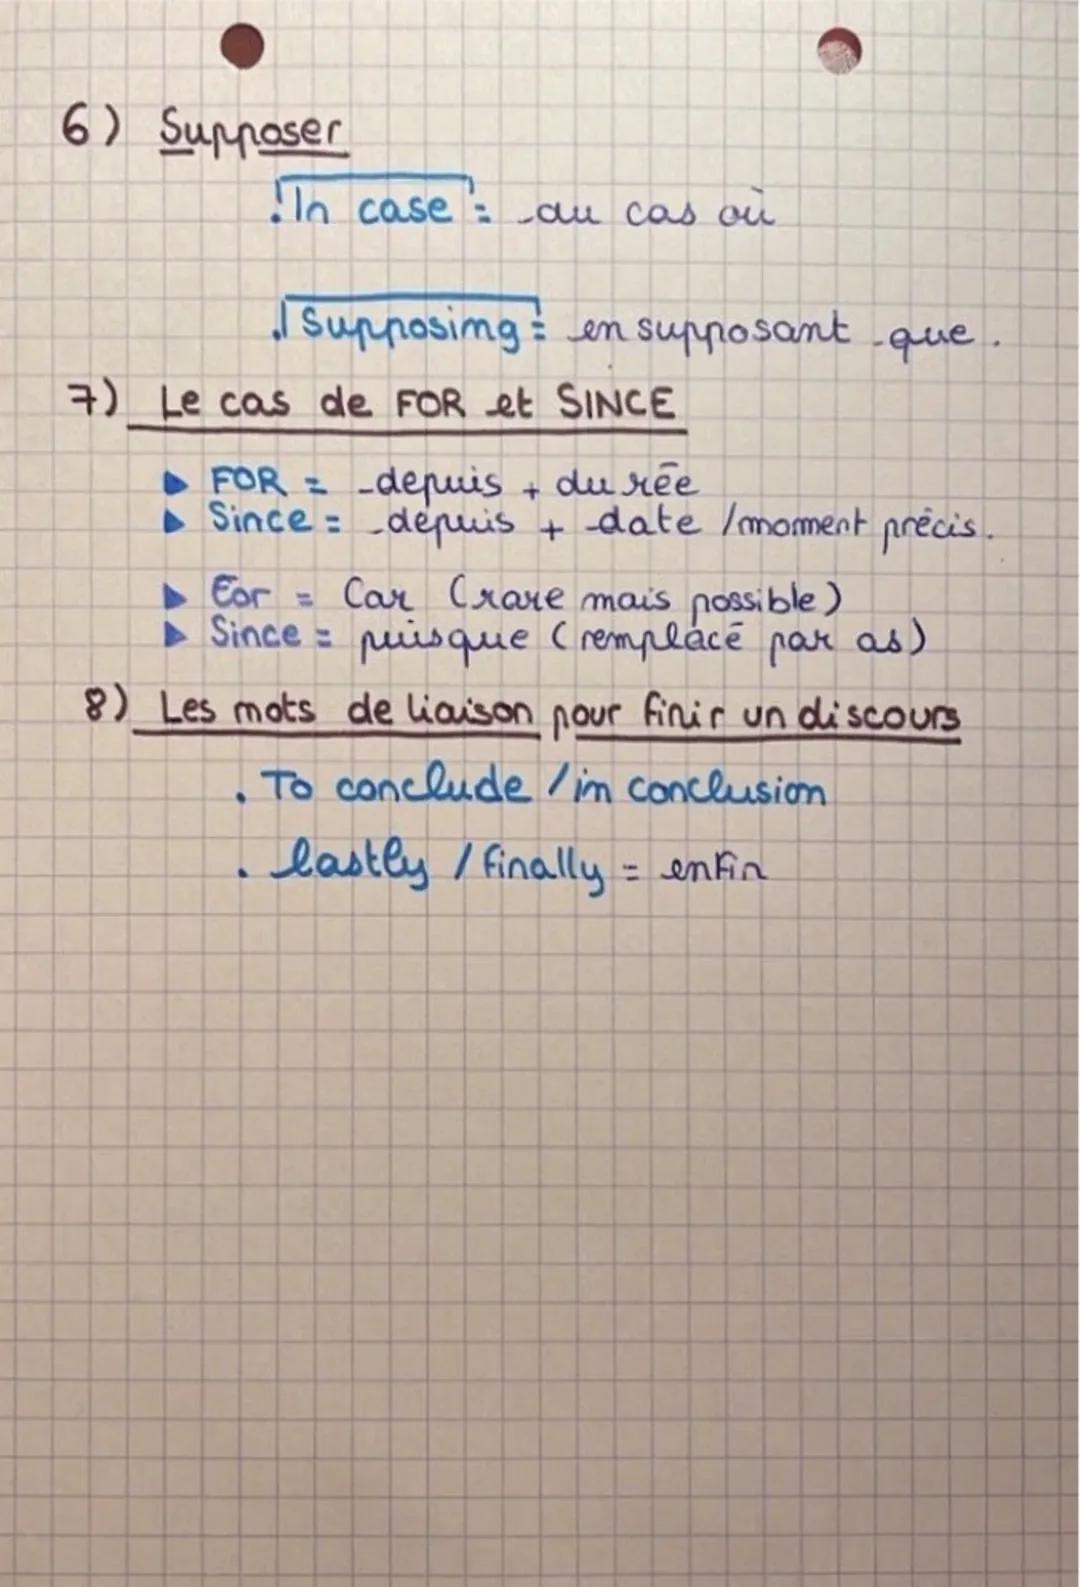 6) Supposer
. In case = au cas où
. Supposing = en supposant que.
7) Le cas de FOR et SINCE
▶ FOR = depuis + durée
▶ Since = depuis + date / moment précis.
▶ For = Car (rare mais possible)
▶ Since = puisque (remplacé par as)
8) Les mots de liaison pour finir un discours
. To conclude / in conclusion
. lastly / finally = enfin